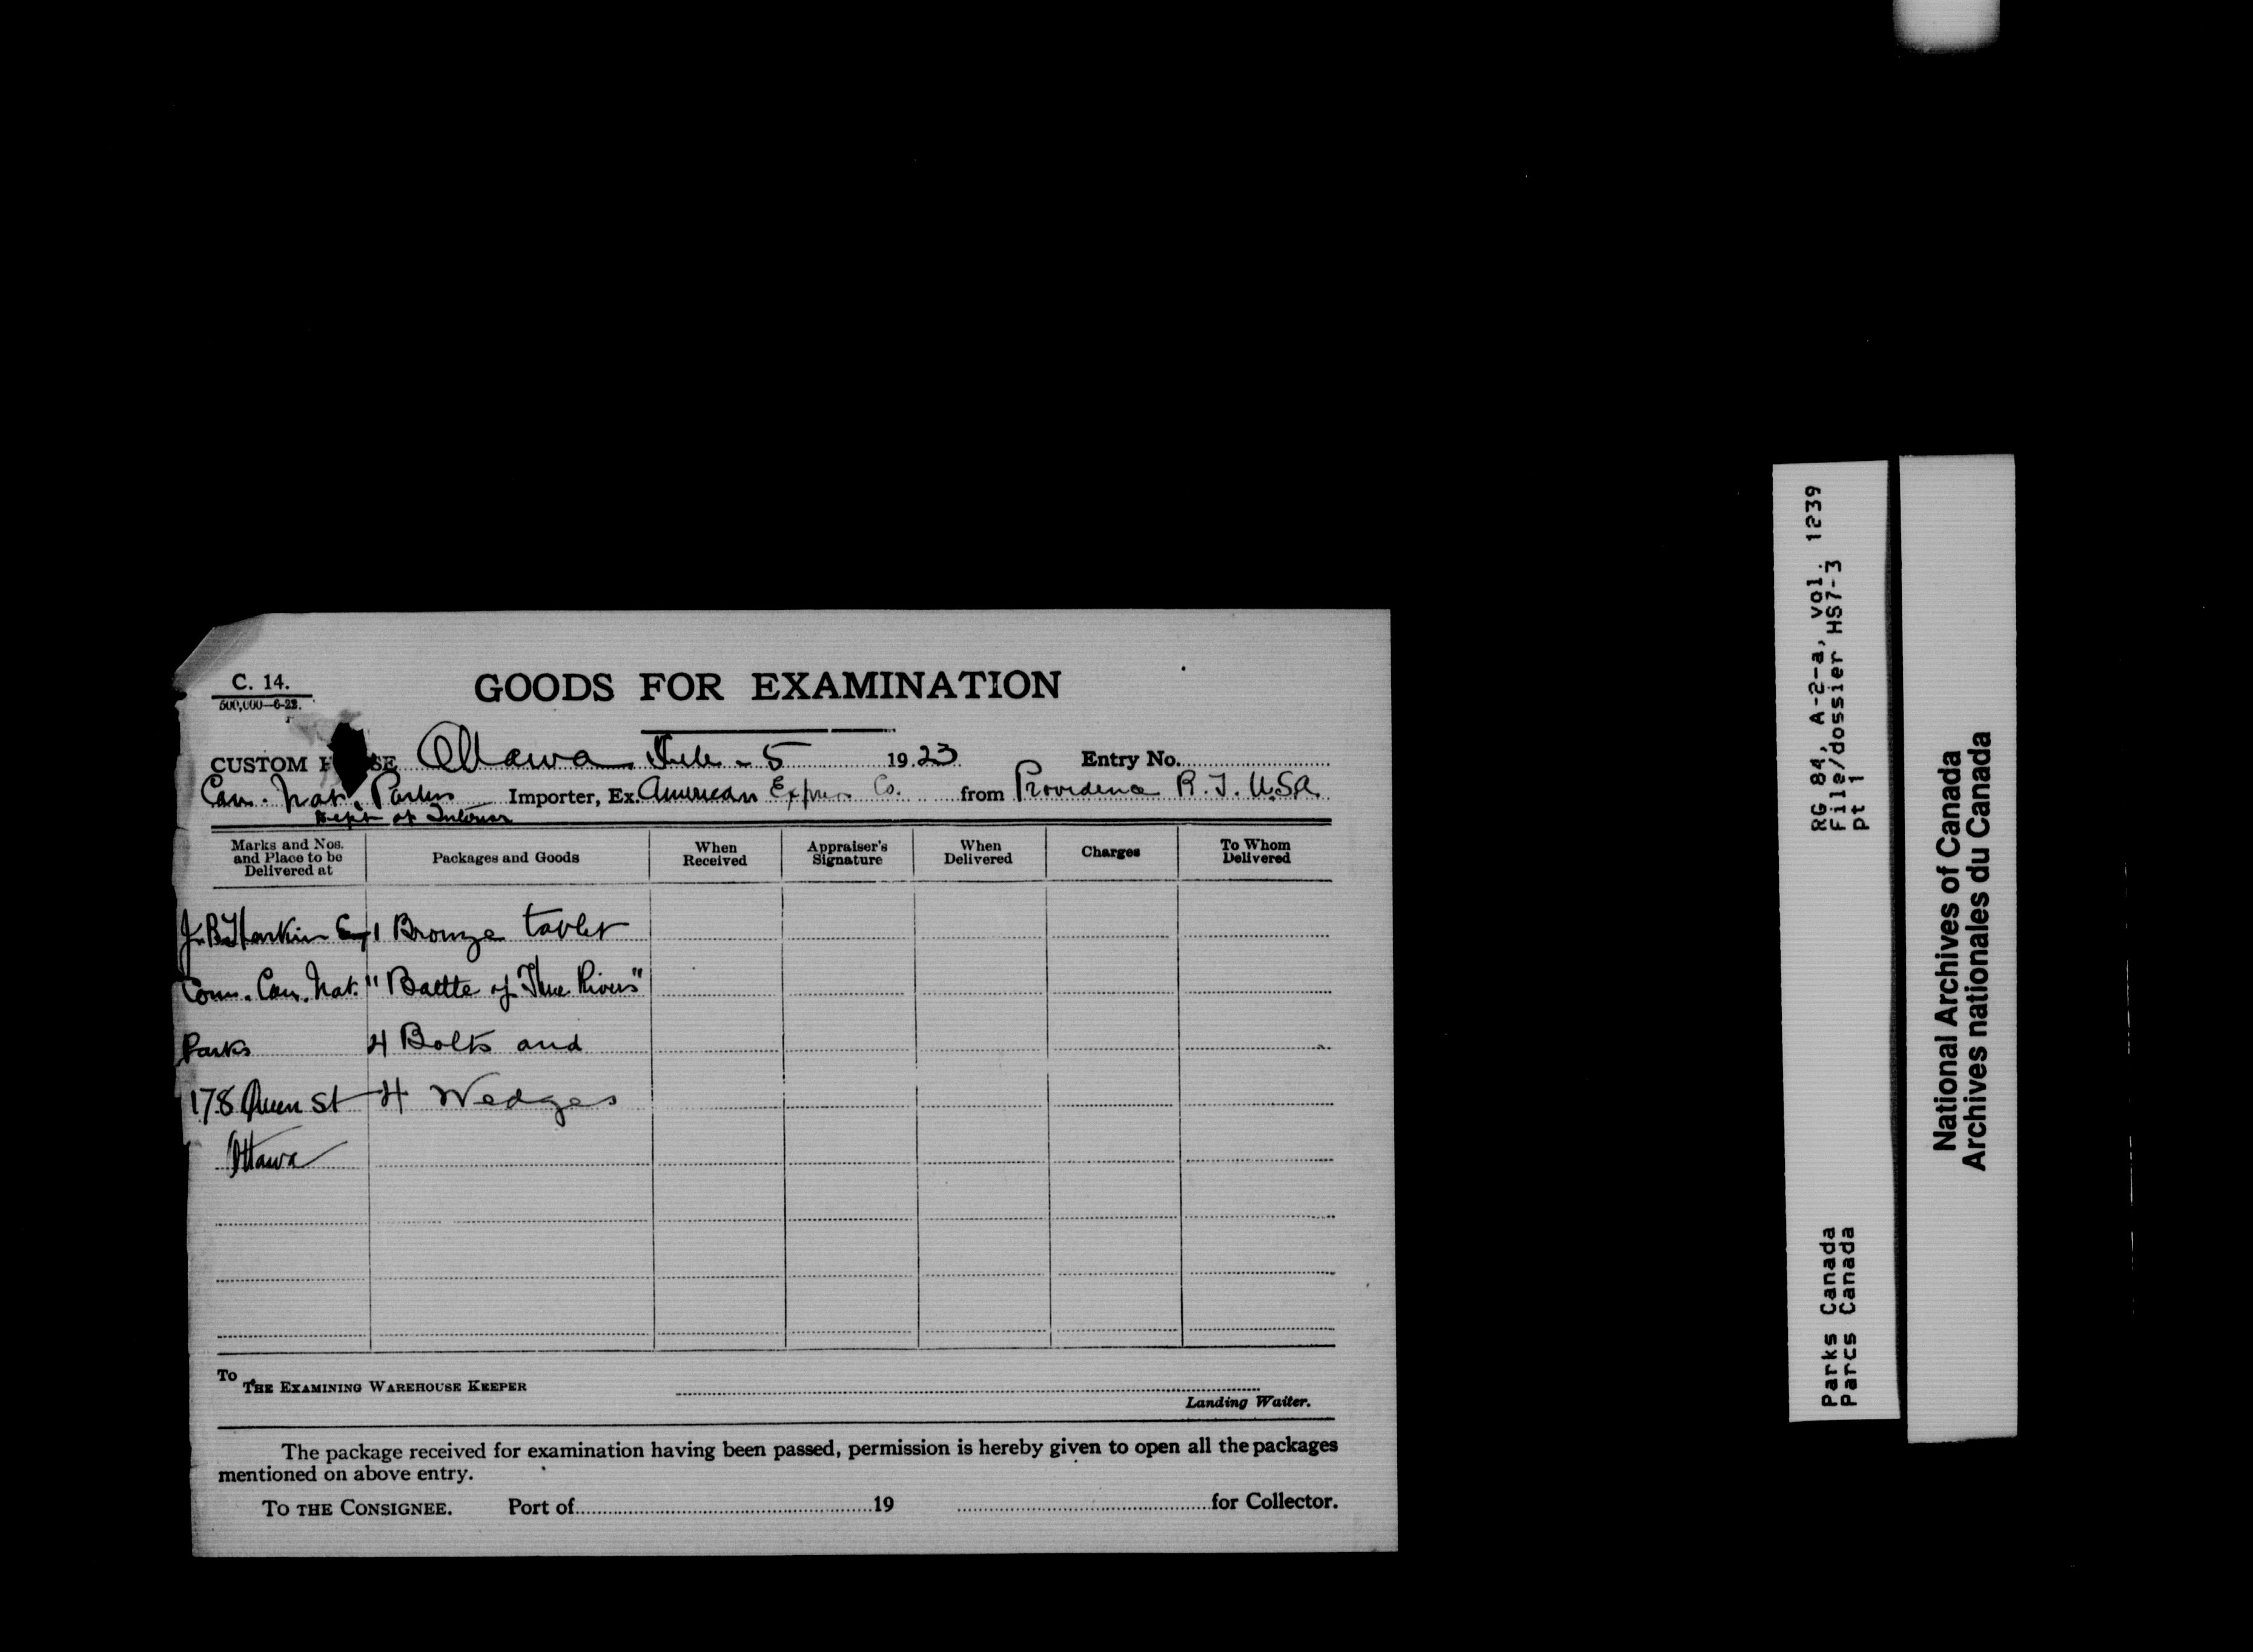 C. 14.
500,000—6-22.
GOODS FOR EXAMINATION
CUSTOM H SE Ottawa 5 1923 Entry No.
Can. Nat. Parks Importer, Ex. American Express Co. from Providence R.I. U.S.A.
Dept of Interior
Marks and Nos. and Place to be Delivered at
Packages and Goods
When Received
Appraiser's Signature
When Delivered
Charges
To Whom Delivered
J.B. Harkin Esq 1 Bronze tablet
Com. Can. Nat. "Battle of Three Rivers"
Parks 4 Bolts and
178 Queen St 4 Wedges
Ottawa
To THE EXAMINING WAREHOUSE KEEPER
Landing Waiter.
The package received for examination having been passed, permission is hereby given to open all the packages
mentioned on above entry.
TO THE CONSIGNEE. Port of 19 for Collector.
RG 84, A-2-a, vol. 1239
File/dossier HS7-3
pt 1
Parks Canada
Parcs Canada
National Archives of Canada
Archives nationales du Canada